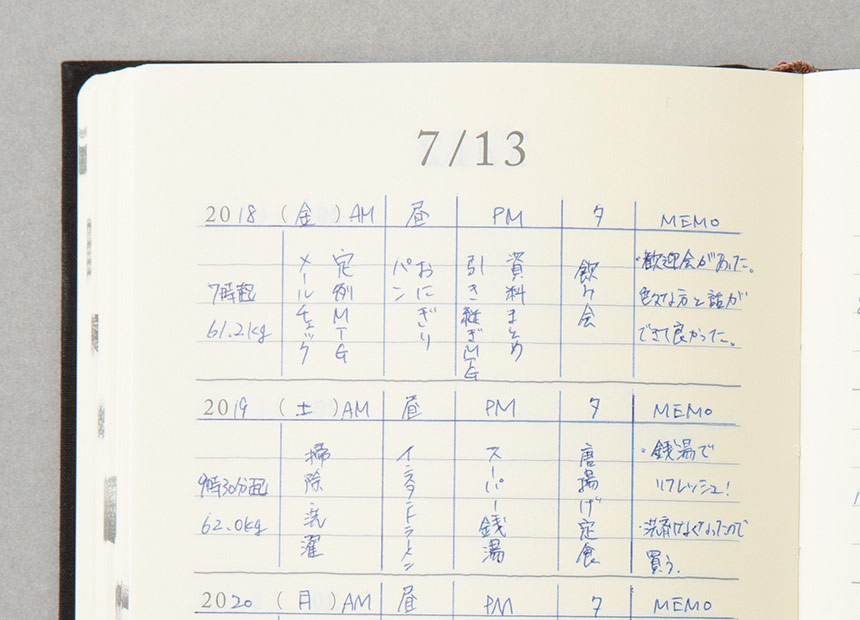 7/13
2018 (金) AM 昼 PM 夕 MEMO
7時起
61.2kg
定例MTG
メールチェック
おにぎり
パン
資料まとめ
引き継ぎMTG
飲み会
・歓迎会があった。
色々な方と話が
できて良かった。
2019 (土) AM 昼 PM 夕 MEMO
9時30分起
62.0kg
掃除・洗濯
インスタントラーメン
スーパー銭湯
唐揚げ定食
・銭湯で
リフレッシュ!
・洗剤なくなったので
買う。
2020 (月) AM 昼 PM 夕 MEMO